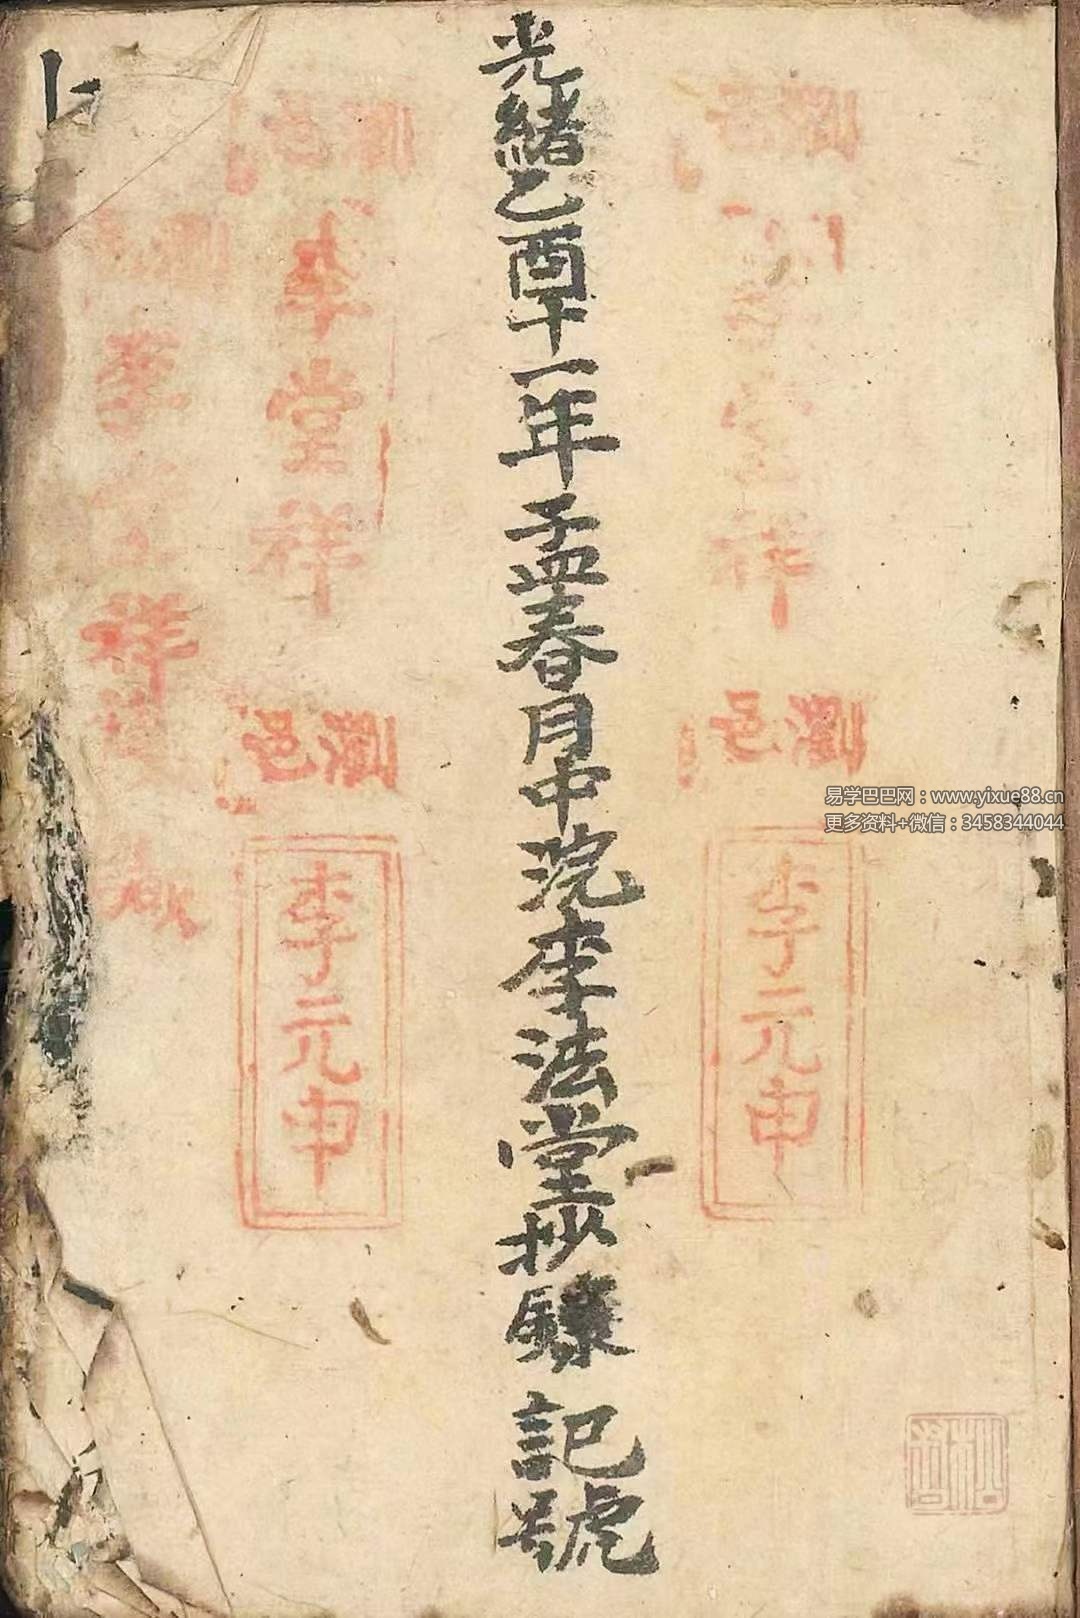 光緒乙酉十一年孟春月中浣李法堂抄錄記號
李堂祥
李元申
邑
堂祥
邑
李元申
李
祥
易学巴巴网：www.yixue88.cn
更多资料+微信：3458344044